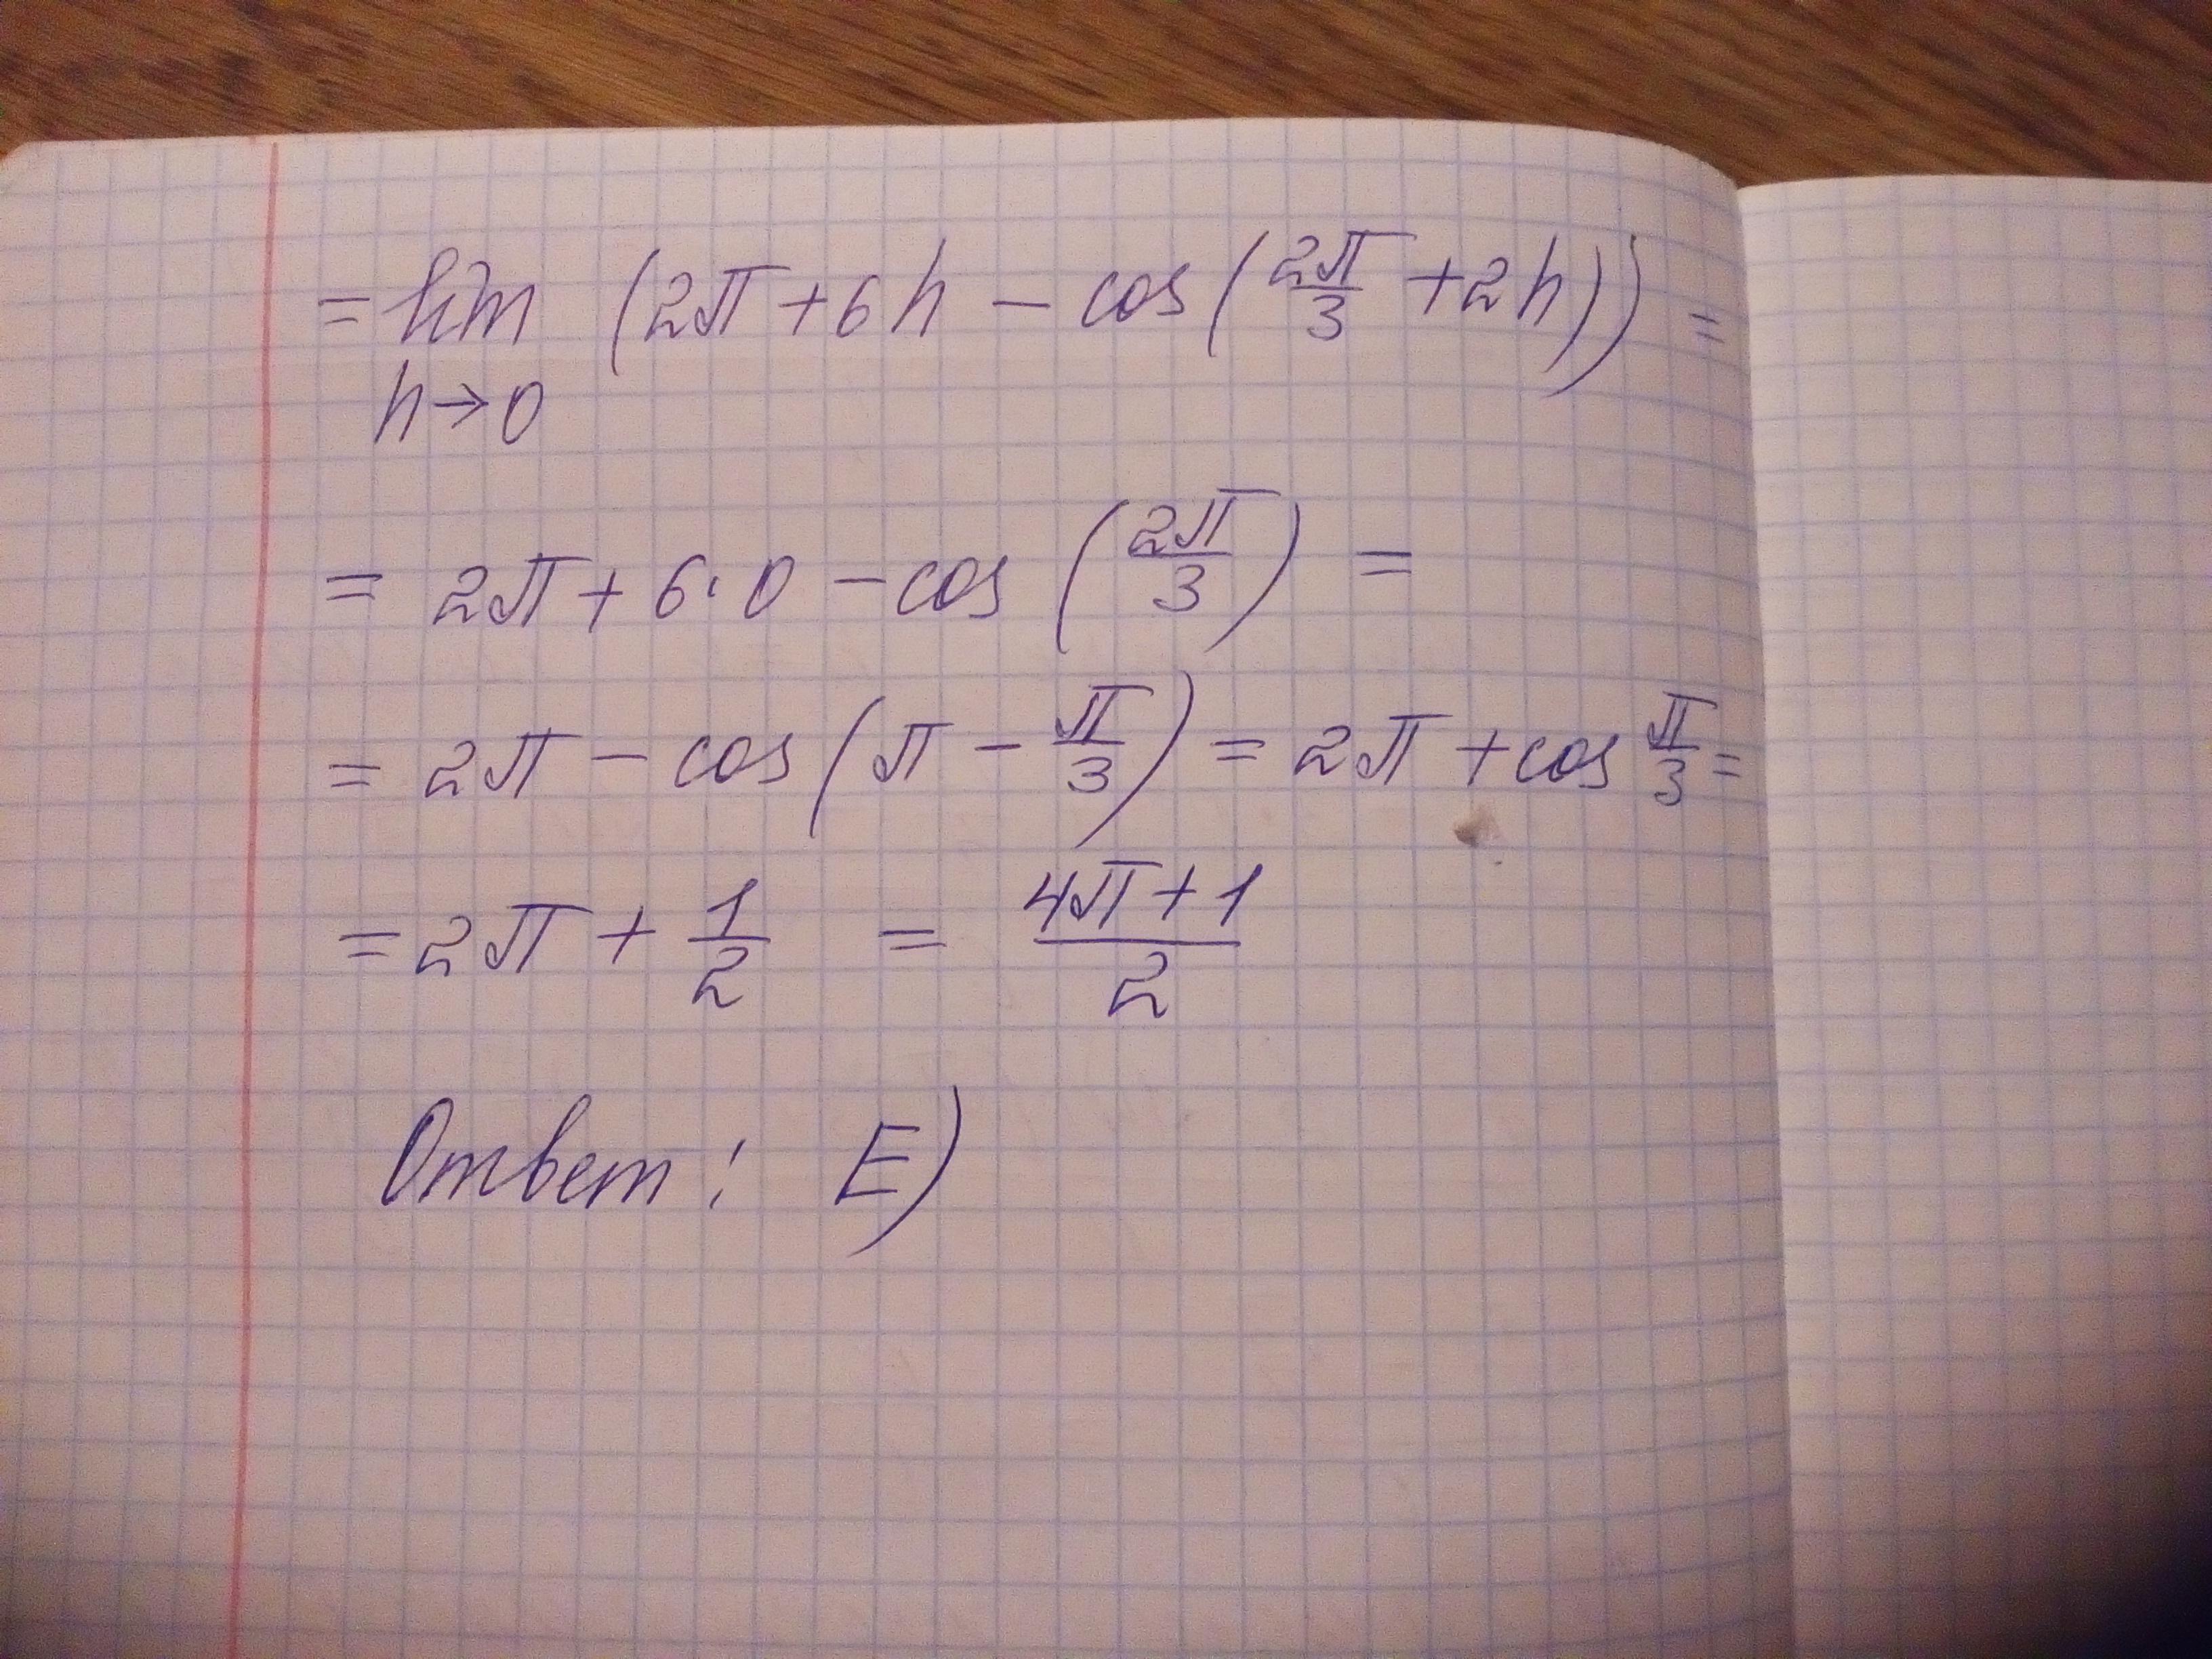 = lim (2π + 6h − cos(2π/3 + 2h)) =
h→0
= 2π + 6·0 − cos(2π/3) =
= 2π − cos(π − π/3) = 2π + cos π/3 =
= 2π + 1/2 = (4π + 1)/2
Ответ: E)